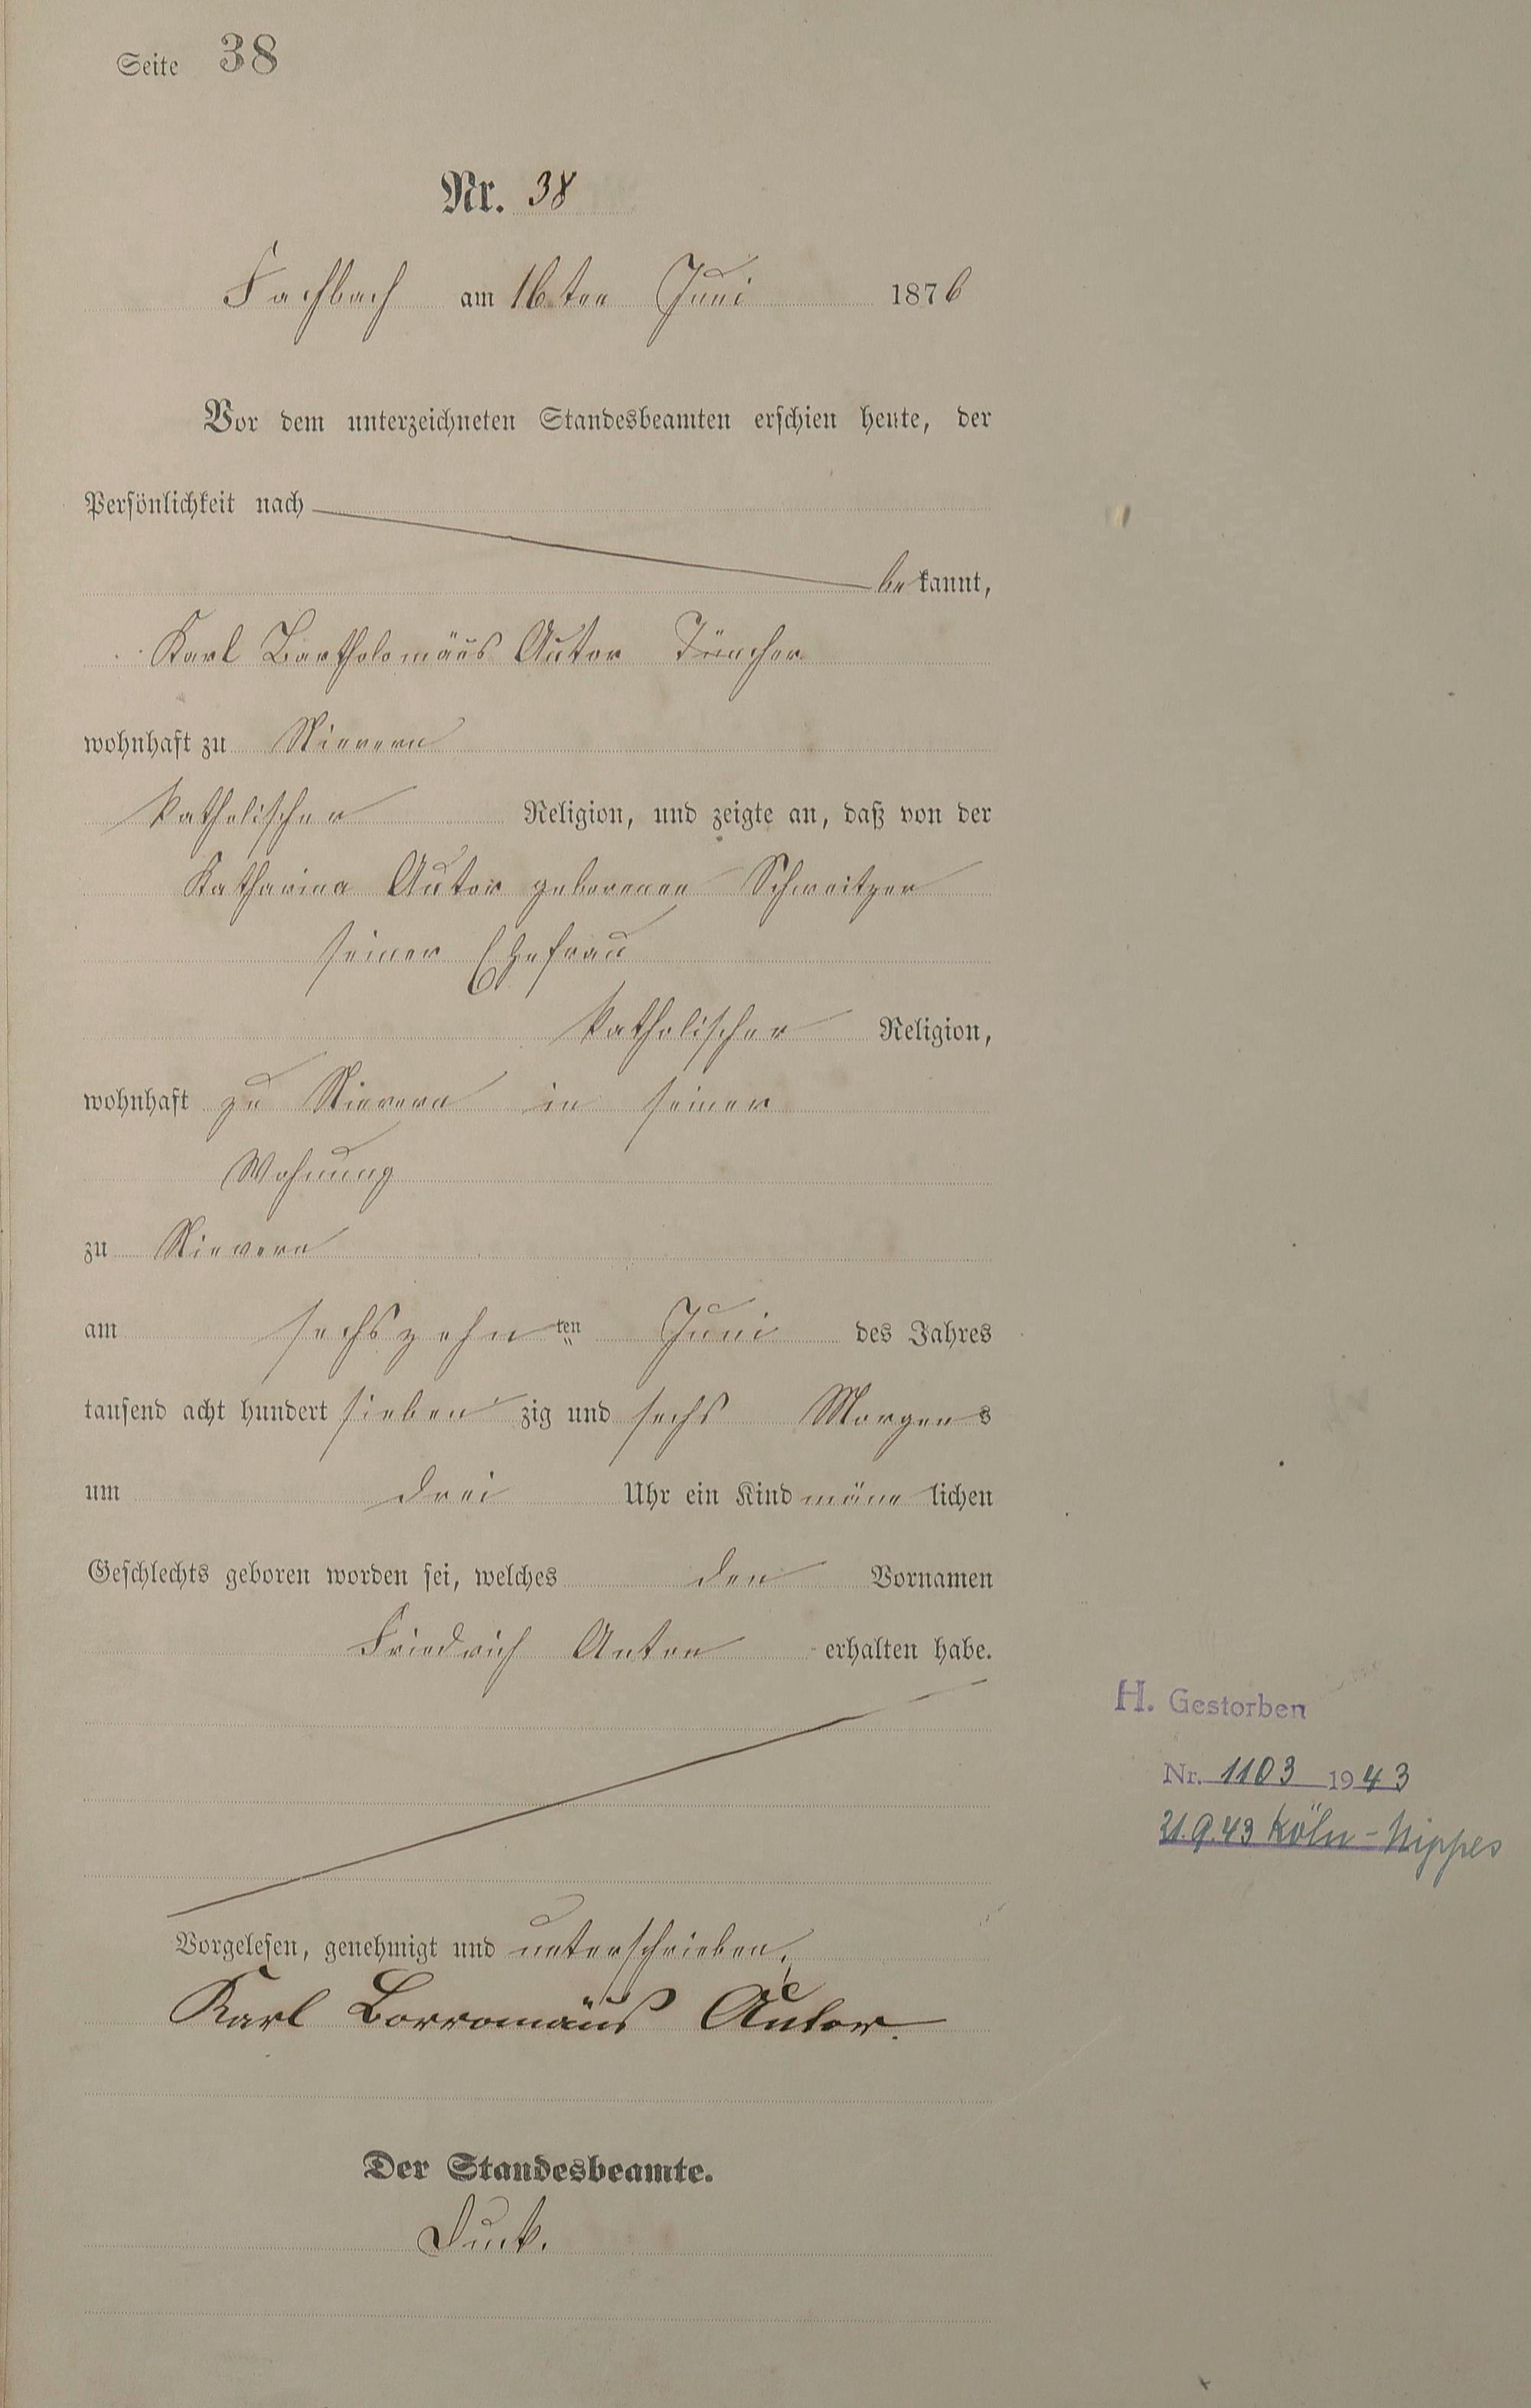 Seite 38
Nr. 38
Fachbach am 16ten Juni 1876
Vor dem unterzeichneten Standesbeamten erschien heute, der
Persönlichkeit nach
bekannt,
Karl Bartholomäus Autor Tüncher
wohnhaft zu Nievern
katholischer Religion, und zeigte an, daß von der
Katharina Autor geborenen Schweitzer
seiner Ehefrau
katholischer Religion,
wohnhaft zu Nievern in seiner
Wohnung
zu Nievern
am sechszehnten Juni des Jahres
tausend acht hundert siebenzig und sechs Morgens
um drei Uhr ein Kind männlichen
Geschlechts geboren worden sei, welches den Vornamen
Friedrich Anton erhalten habe.
H. Gestorben
Nr. 1103 1943
21.9.43 Köln-Nippes
Vorgelesen, genehmigt und unterschrieben,
Karl Borromäus Autor.
Der Standesbeamte.